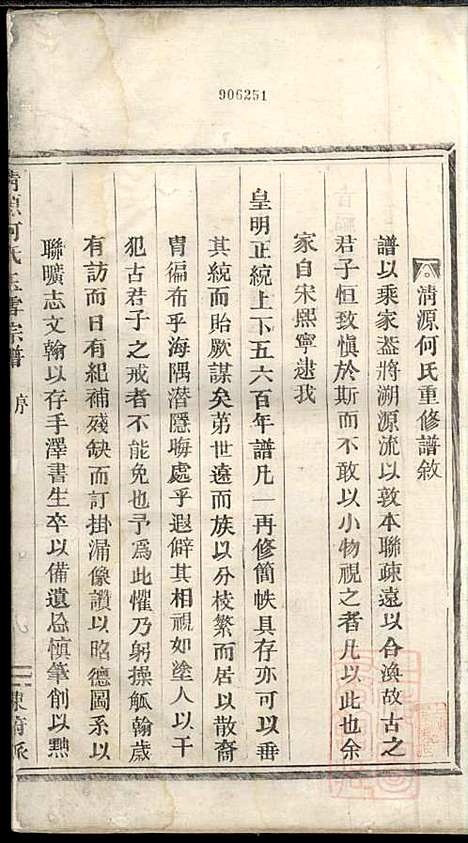 906251
清源何氏重修譜敘
譜以乘家蓋將溯源流以敦本聯疎遠以合渙故古之
君子恒致愼於斯而不敢以小物視之者凡以此也余
家自宋熙寧逮我
皇明正統上下五六百年譜凡一再修簡帙具存亦可以垂
其統而貽厥謀矣第世遠而族以分枝繁而居以散裔
冑徧布乎海隅潛隱晦處乎遐僻其相視如塗人以干
犯古君子之戒者不能免也予爲此懼乃躬操觚翰歲
有訪而日有紀補殘缺而訂掛漏像讚以昭德圖系以
聯曠志文翰以存手澤書生卒以備遺忘愼筆創以勲
清源何氏宗譜
序
東府派